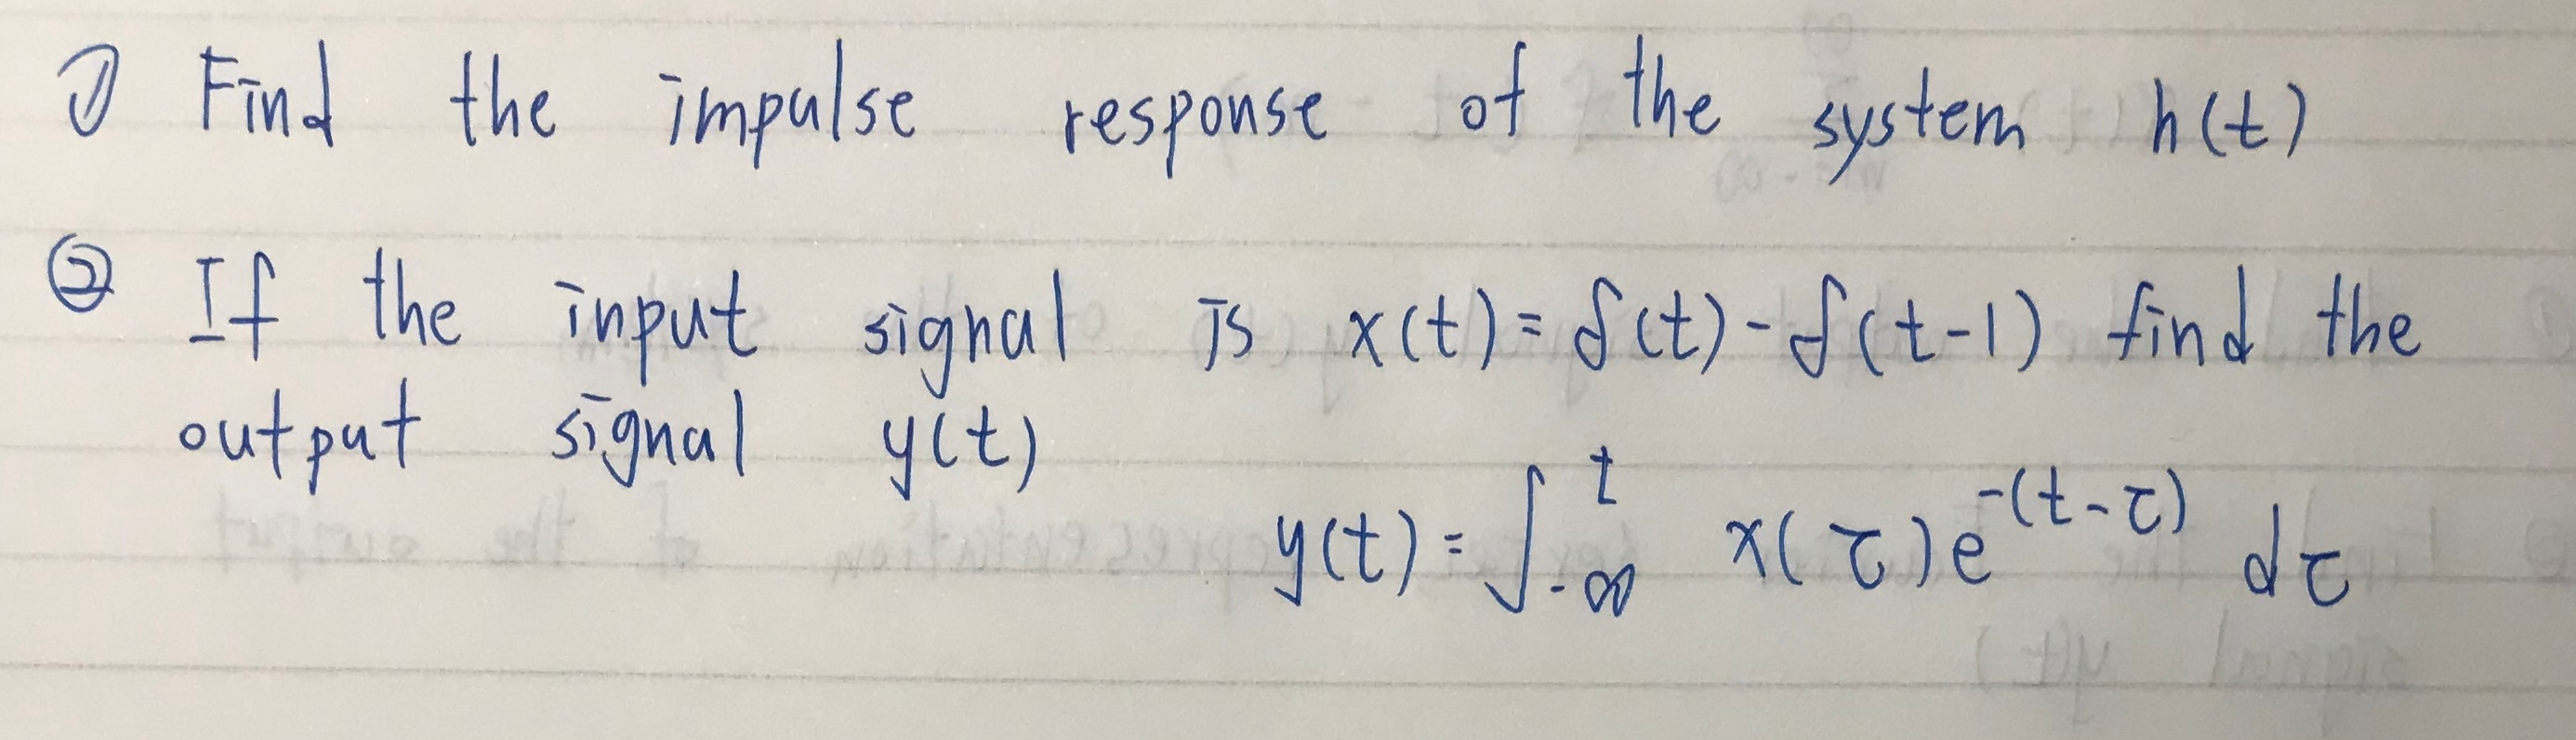 ① Find the impulse response of the system h(t)
② If the input signal is x(t) = δ(t) - δ(t-1) find the
output signal y(t)
y(t) = ∫_{-∞}^{t} x(τ) e^{-(t-τ)} dτ